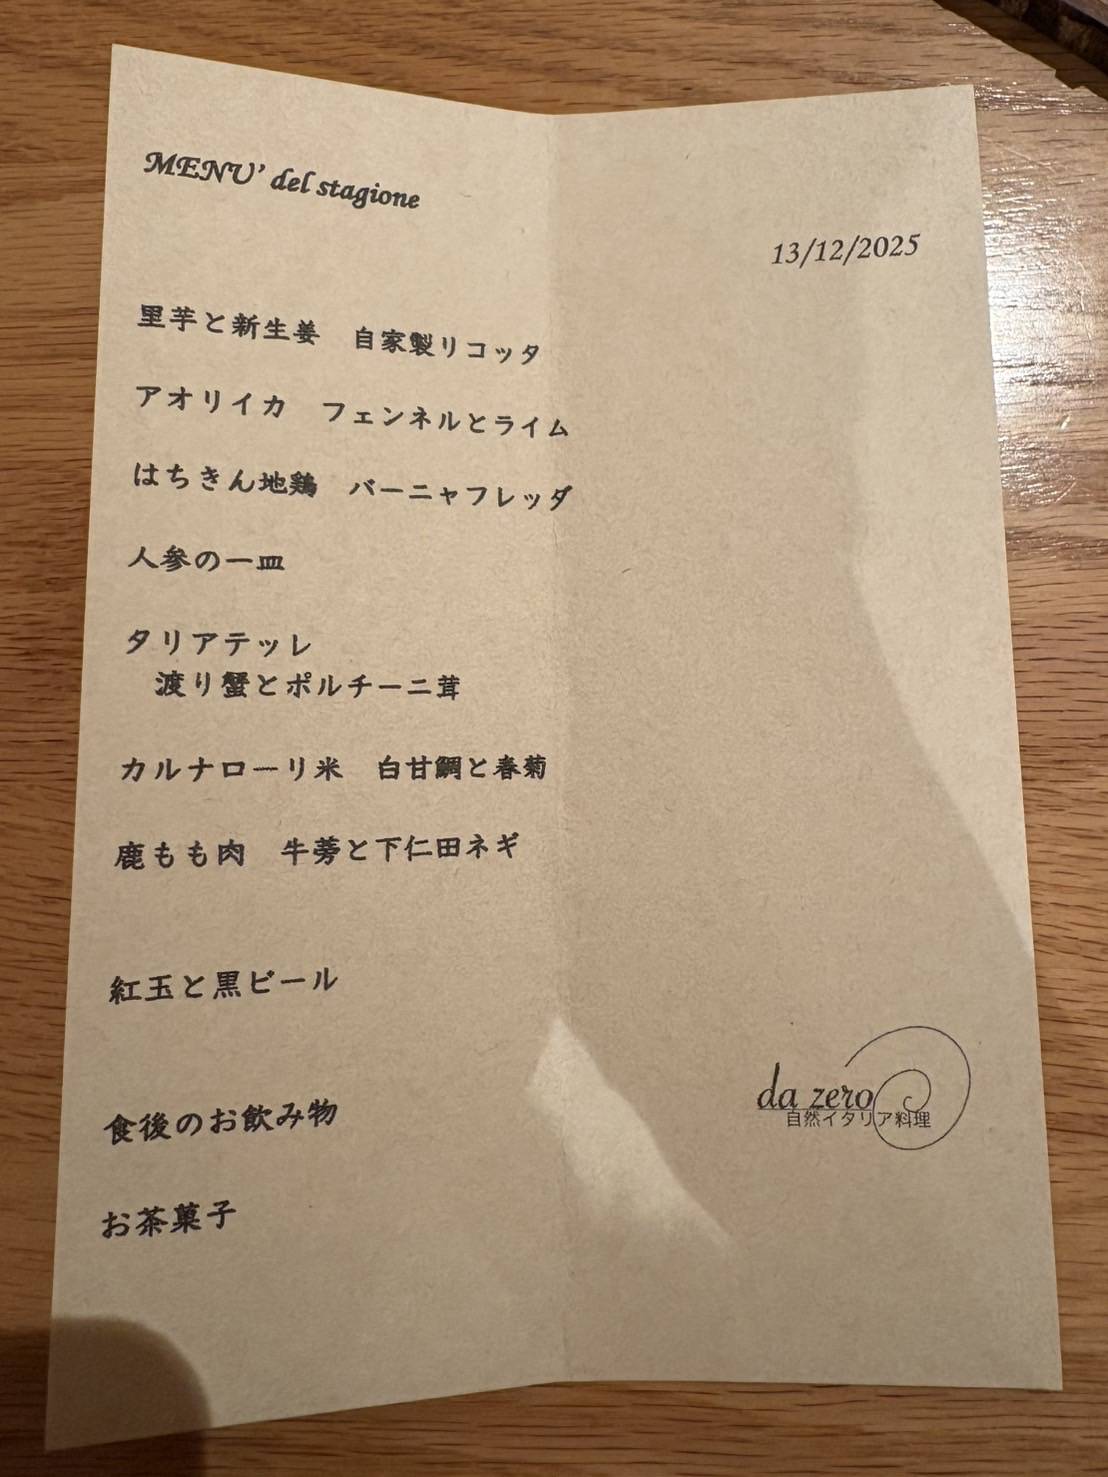 MENU' del stagione
13/12/2025
里芋と新生姜　自家製リコッタ
アオリイカ　フェンネルとライム
はちきん地鶏　バーニャフレッダ
人参の一皿
タリアテッレ
渡り蟹とポルチーニ茸
カルナローリ米　白甘鯛と春菊
鹿もも肉　牛蒡と下仁田ネギ
紅玉と黒ビール
食後のお飲み物
お茶菓子
da zero
自然イタリア料理